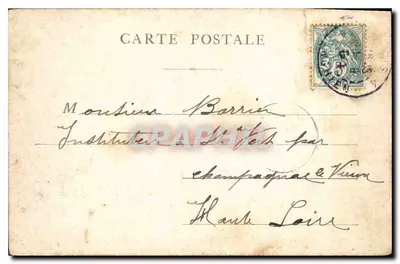 CARTE POSTALE
Monsieur Barrier
Instituteur à St Vert par
Champagnac le Vieux
Haute Loire